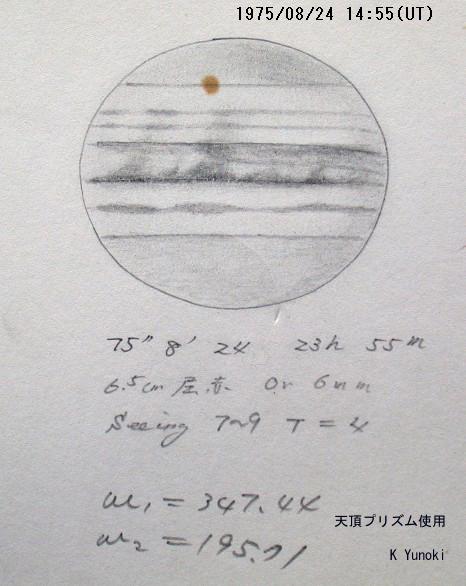 1975/08/24 14:55(UT)
75" 8' 24 23h 55m
6.5cm 屈赤 Or 6mm
Seeing 7~9 T = 4
ω₁ = 347.44
ω₂ = 195.71
天頂プリズム使用
K Yunoki